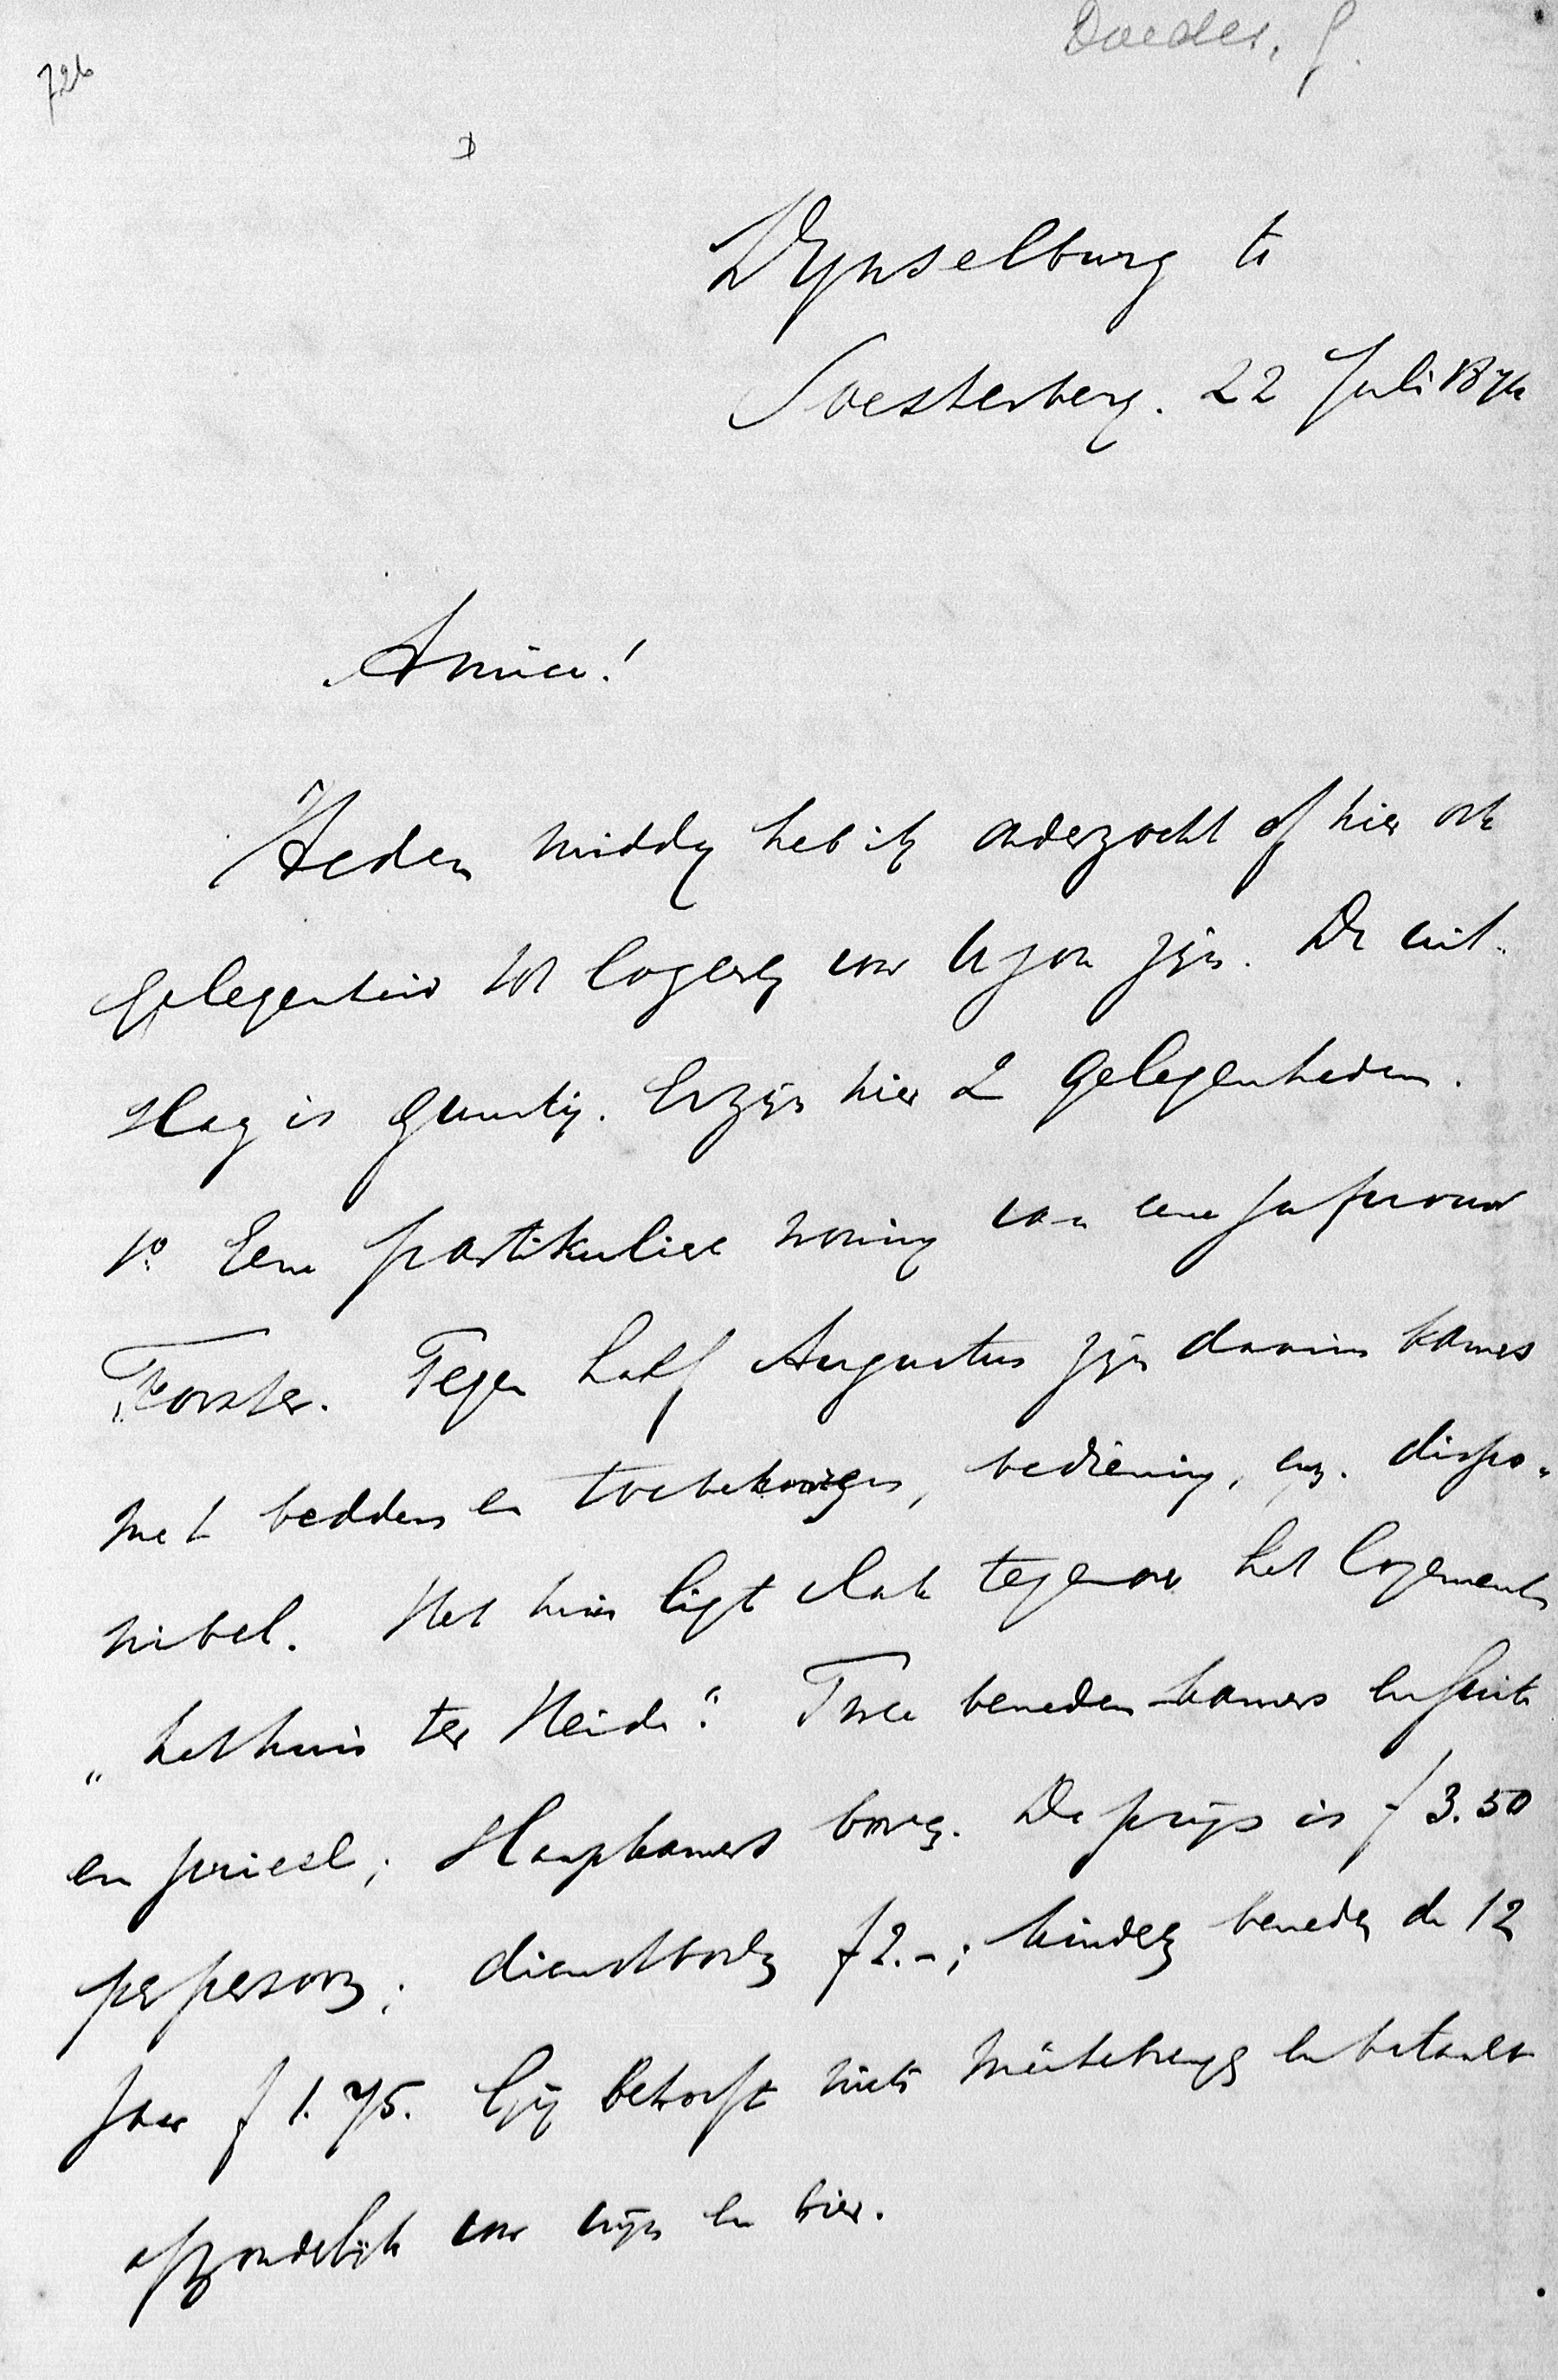 Doedes, J.
726
D
Wijnselburg te
Soesterberg. 22 Juli 1874
Amice!
Heden middag heb ik onderzocht of hier ook
gelegenheid tot logeren voor U zou zijn. De uit-
slag is gunstig. Er zijn hier 2 gelegenheden.
1o. Eene partikuliere woning van eene Jufvrouw
Forster. Tegen half Augustus zijn daarin kamers
met bedden en toebehooren, bediening, enz. dispo-
nibel. Het huis ligt vlak tegenover het logement
„het huis ter Heide". Twee beneden kamers en suite
en prieel; slaapkamers boven. De prijs is f 3.50
per persoon; dienstboden f 2.-; kinderen beneden de 12
jaar f 1.75. Gij behoeft niets mede te brengen en betaalt
afzonderlijk voor wijn en bier.